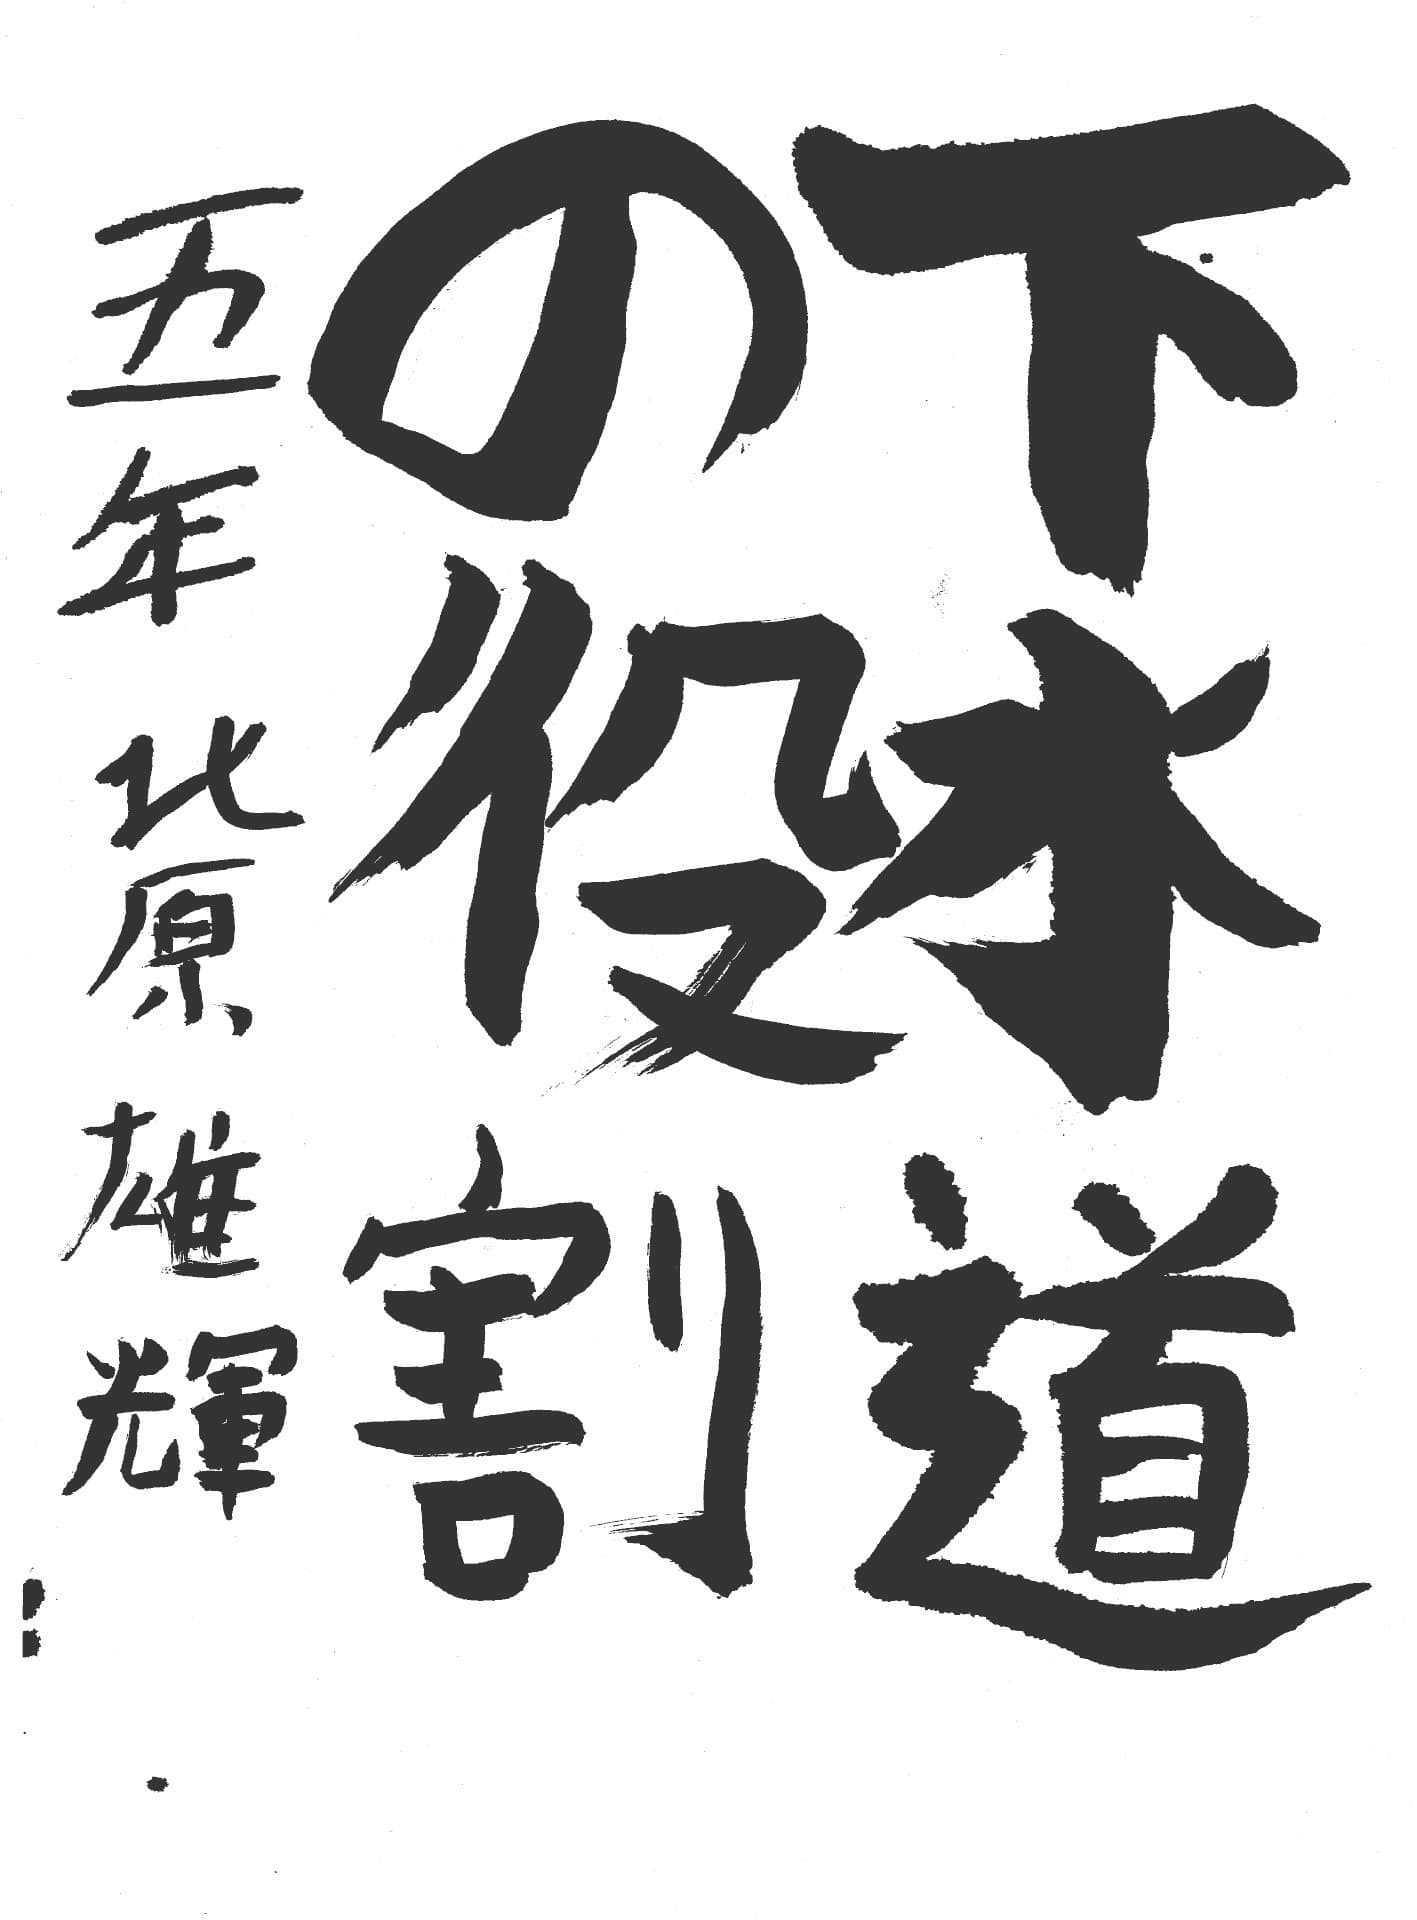 下水道
の役割
五年 北原 雄輝